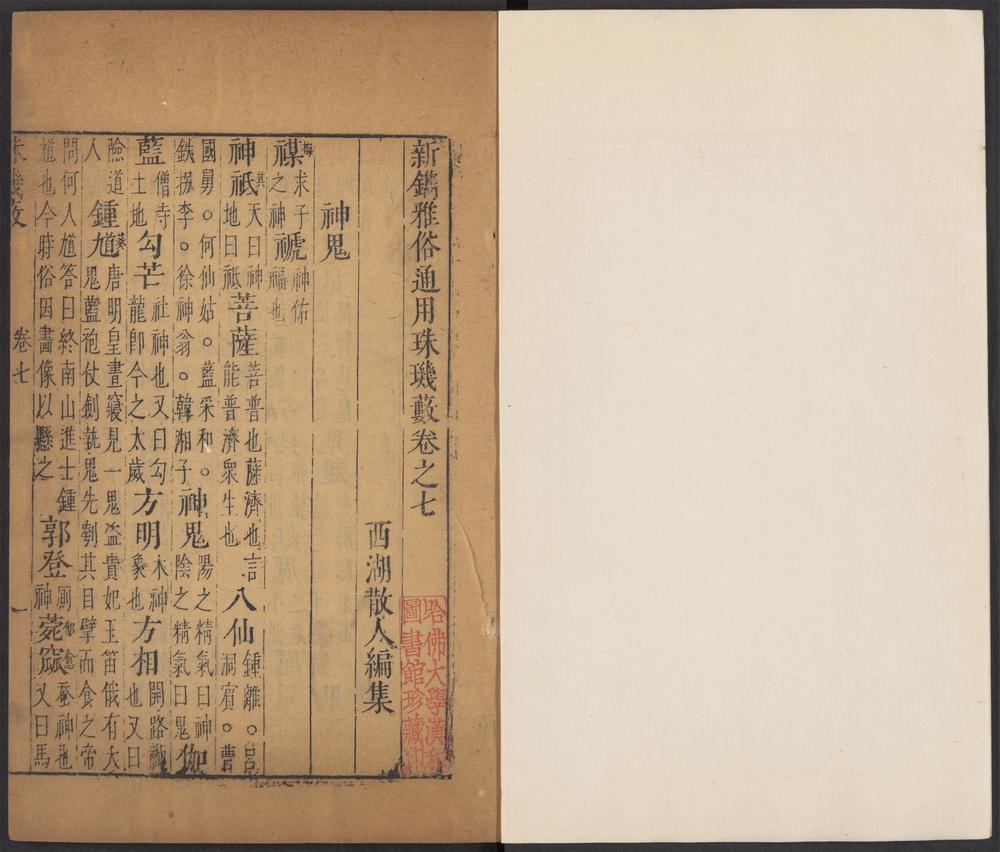 新鐫雅俗通用珠璣藪卷之七
西湖散人編集
神鬼
禖梅求子之神禠神佑福也
神祇其天曰神地曰祇菩薩菩普也薩濟也言能普濟衆生也八仙鍾離。呂洞賓。曹
國舅。何仙姑。藍采和。鉄拐李。徐神翁。韓湘子神鬼陽之精氣曰神陰之精氣曰鬼伽
藍僧寺土地勾芒社神也又曰勾龍卽今之太歲方明木神象也方相開路神也又曰
險道人鍾馗葵唐明皇晝寢見一鬼盗貴妃玉笛俄有大鬼藍袍仗劍執鬼先刳其目擘而食之帝
問何人馗答曰終南山進士鍾馗也今時俗因畫像以懸之郭登厠神菀窳鬱愈蚕神也又曰馬
珠璣藪 卷七 一
哈佛大學漢和圖書館珍藏印